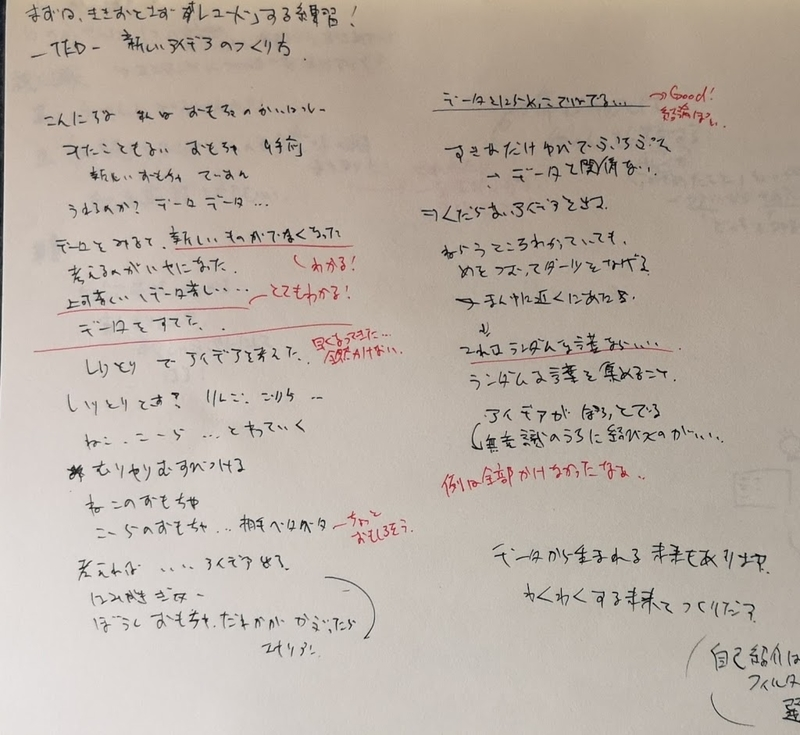 まずは、ききおとさず「レコード」する練習!
—TED— 新しいアイデアのつくり方
こんにちは 私は おもちゃの
みたこともない おもちゃ
新しいおもちゃ
うれるのか? データ データ…
データをみるて、新しいものがでなくなった
考えるのがイヤになった。
わかる!
上司苦しい、データ苦しい…
とてもわかる!
データをすてた.
しりとり でアイデアを考えた.
早くなってきた…
全然かけない.
しりとりとは? りんご. ごりら …
ねこ. こーら …とやっていく
むりやりむすびつける
ねこのおもちゃ
こーらのおもちゃ…
ちょっと
おもしろそう.
考えれば いい アイデア出る
ぼうし おもちゃ. だれかが かぶったら
データを こではでる…
Good!
結論ぽい.
すきなだけ ゆびで ぷちぷち
→ データと関係ない.
⇒ くだらないアイデアを出す
ねらうところわかっていても、
めをつぶってダーツをなげる
→ まん中に近くにあたる
これは ランダムな言葉ならいい…
ランダムな言葉を集めること.
アイデアが ぽろっとでる
無意識のうちに結びつくのがいい.
例は全部かけなかったなぁ..
データから生まれる未来もあります.
わくわくする未来を つくりだす
自己紹介は
フィルタ